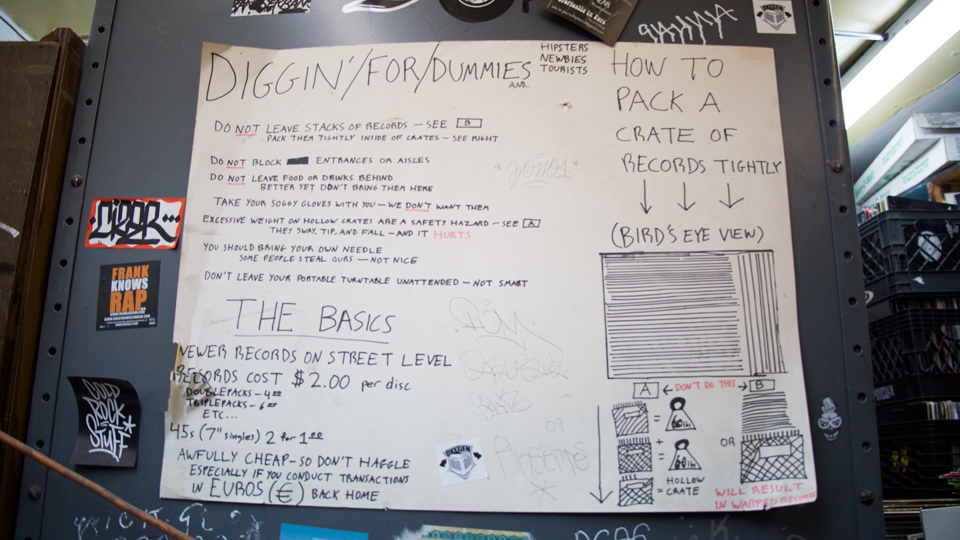 DIGGIN'/FOR/DUMMIES
AND..
HIPSTERS
NEWBIES
TOURISTS
DO NOT LEAVE STACKS OF RECORDS – SEE B
PACK THEM TIGHTLY INSIDE OF CRATES – SEE RIGHT
DO NOT BLOCK ENTRANCES OR AISLES
DO NOT LEAVE FOOD OR DRINKS BEHIND
BETTER YET DON'T BRING THEM HERE
TAKE YOUR SOGGY GLOVES WITH YOU – WE DON'T WANT THEM
EXCESSIVE WEIGHT ON HOLLOW CRATES ARE A SAFETY HAZARD – SEE A
THEY SWAY, TIP, AND FALL – AND IT HURTS
YOU SHOULD BRING YOUR OWN NEEDLE
SOME PEOPLE STEAL OURS – NOT NICE
DON'T LEAVE YOUR PORTABLE TURNTABLE UNATTENDED – NOT SMART
THE BASICS
NEWER RECORDS ON STREET LEVEL
RECORDS COST $2.00 per disc
DOUBLEPACKS – 4.00
TRIPLEPACKS – 6.00
ETC...
45s (7" singles) 2 for 1.00
AWFULLY CHEAP – SO DON'T HAGGLE
ESPECIALLY IF YOU CONDUCT TRANSACTIONS
IN EUROS (€) BACK HOME
HOW TO
PACK A
CRATE OF
RECORDS TIGHTLY
(BIRD'S EYE VIEW)
A ← DON'T DO THIS → B
= 60lb
+
= 60lb
OR
HOLLOW
= CRATE
WILL RESULT
IN WARPED RECORDS
FRANK
KNOWS
RAP
COLD
ROCK
STUFF